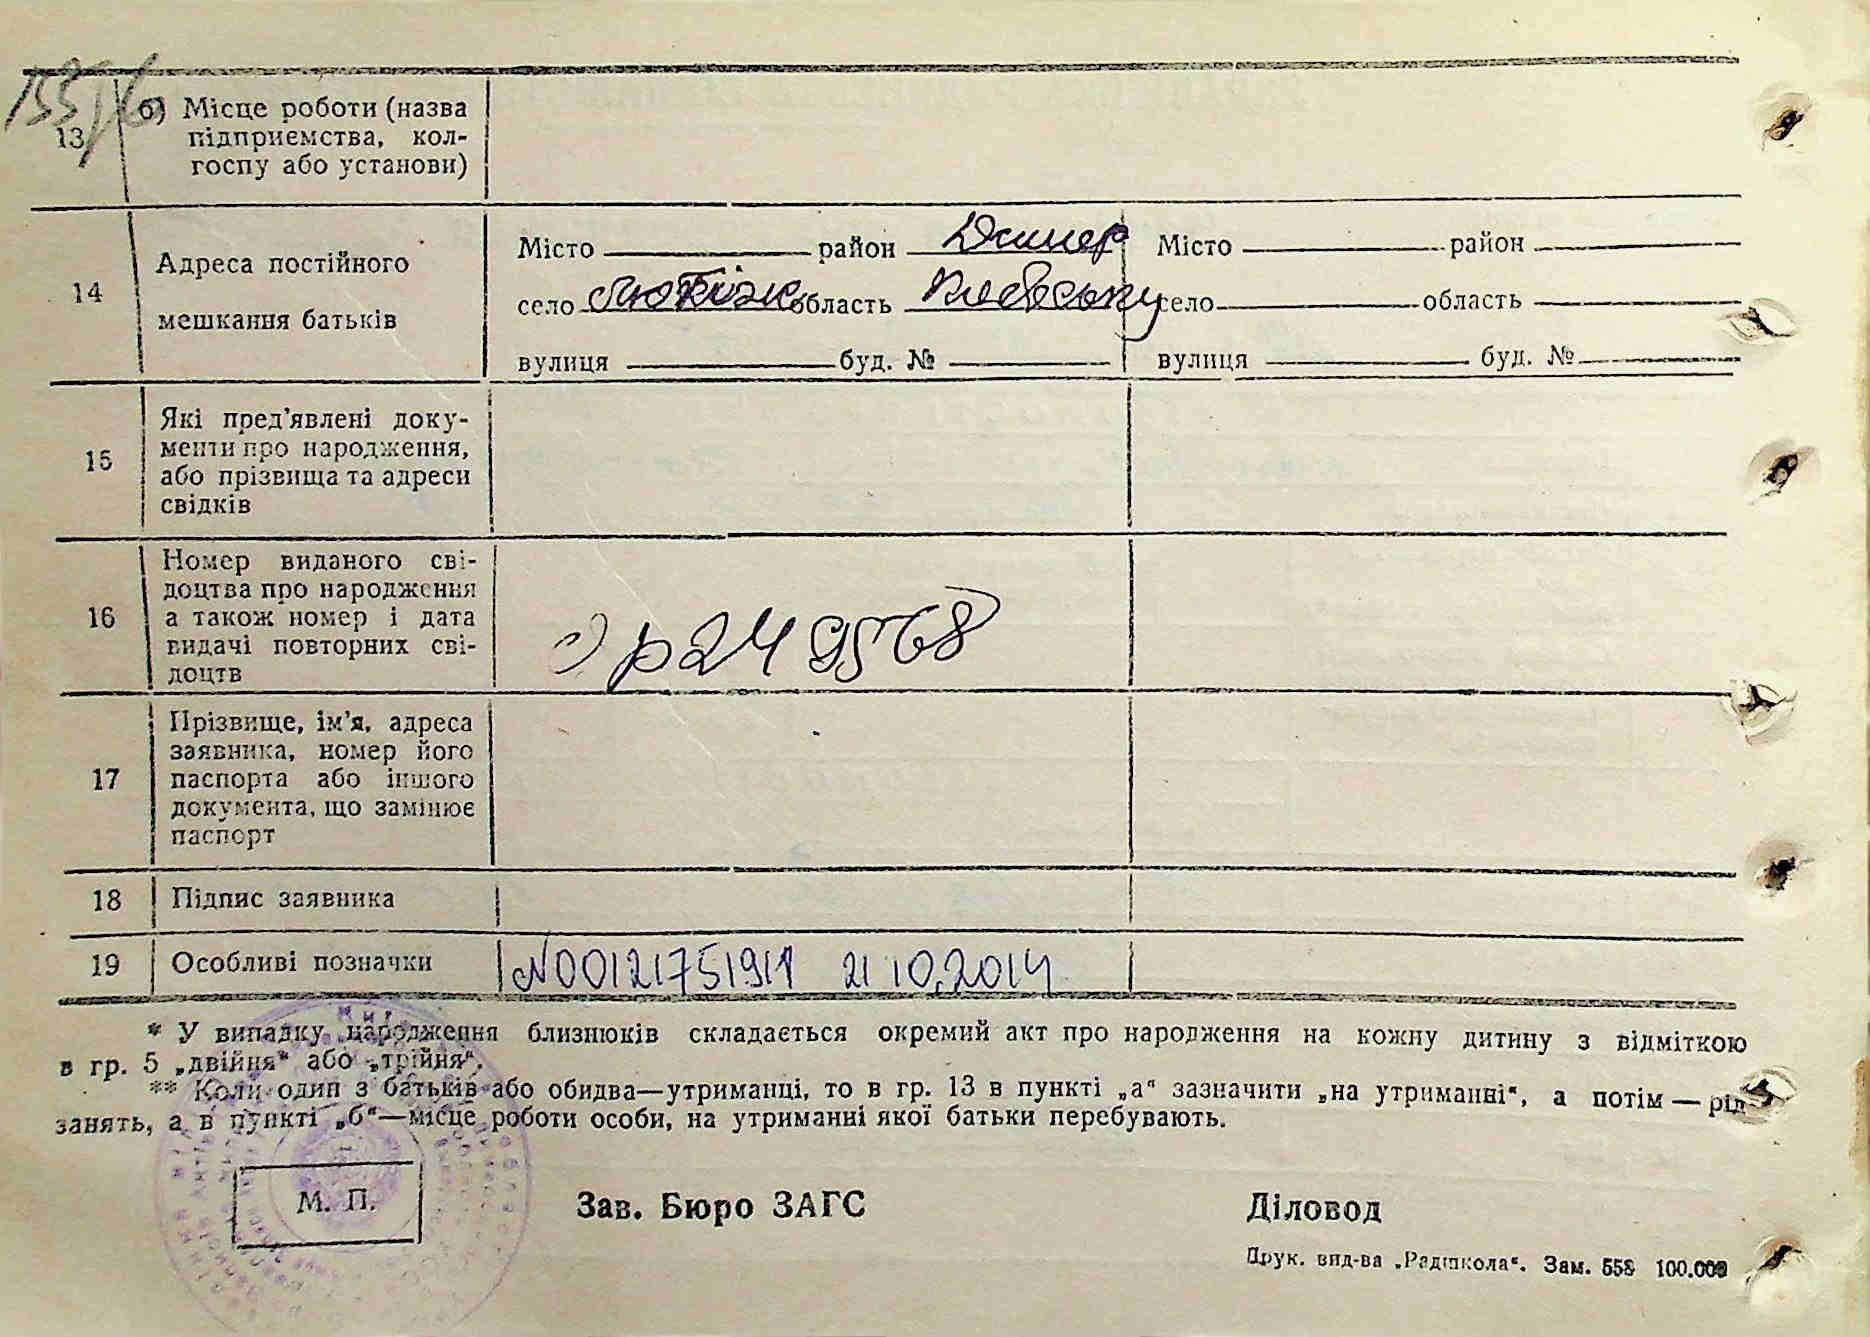 13
б) Місце роботи (назва
підприємства, кол-
госпу або установи)
14
Адреса постійного
мешкання батьків
Місто район Димер Місто район
село Лютіж область Киевську село область
вулиця буд. № вулиця буд. №
15
Які пред'явлені доку-
менти про народження,
або прізвища та адреси
свідків
16
Номер виданого сві-
доцтва про народження
а також номер і дата
видачі повторних сві-
доцтв
249568
17
Прізвище, ім'я, адреса
заявника, номер його
паспорта або іншого
документа, що замінює
паспорт
18 Підпис заявника
19 Особливі позначки N00121751911 21 10.2014
* У випадку народження близнюків складається окремий акт про народження на кожну дитину з відміткою
в гр. 5 „двійня“ або „трійня“.
** Коли один з батьків або обидва—утриманці, то в гр. 13 в пункті „а“ зазначити „на утриманні“, а потім — рід
занять, а в пункті „б“—місце роботи особи, на утриманні якої батьки перебувають.
М. П. Зав. Бюро ЗАГС Діловод
Друк. вид-ва „Радшкола“. Зам. 558 100.000